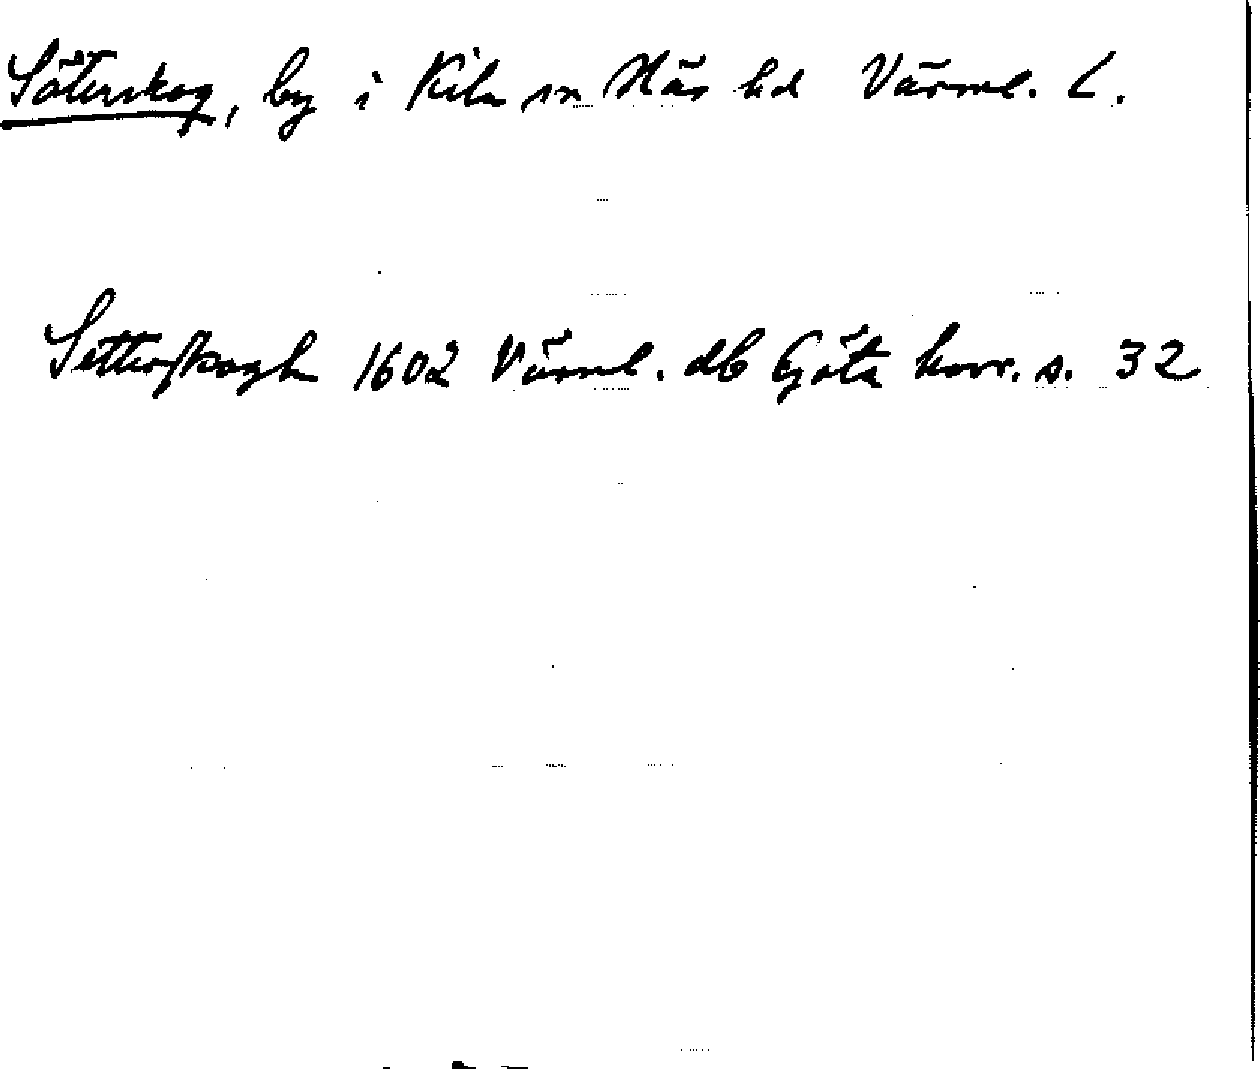 Säterskog, by i Kila sn Näs hd Värml. l.
Setterskogh 1602 Värml. db Göta hovr. s. 32